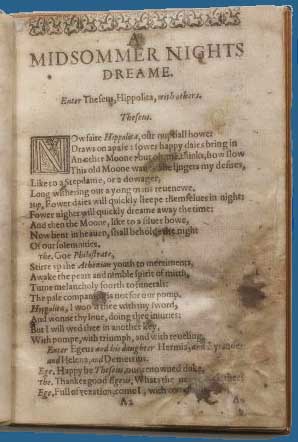 A
MIDSOMMER NIGHTS
DREAME.
Enter Theseus, Hippolita, with others.
Theseus.
NOw faire Hippolita, our nuptiall hower
Draws on apase: fower happy daies bring in
Another Moone: but me thinks, how slow
This old Moone lingers my desires,
Like to a Stepdame, or a dowager,
Long withering out a yong mans reuenewe.
Hip, Fower daies will quickly steepe themselues in night:
Fower nights will quickly dreame away the time:
And then the Moone, like to a siluer bowe,
Now bent in heauen, shall beholde the night
Of our solemnities.
The. Goe Philostrate,
Stirre vp the Athenian youth to merriments,
Awake the peart and nimble spirit of mirth,
Turne melancholy foorth to funerals:
The pale companion is not for our pomp.
Hyppolita, I woo'd thee with my sword,
And wonne thy loue, doing thee iniuries:
But I will wed thee in another key,
With pompe, with triumph, and with reueling.
Enter Egeus and his daughter Hermia,
and Helena, and Demetrius.
Ege. Happy be Theseus, our renowned duke.
The. Thanks good Egeus. Whats the newes with thee?
Ege, Full of vexation, come I, with
A2